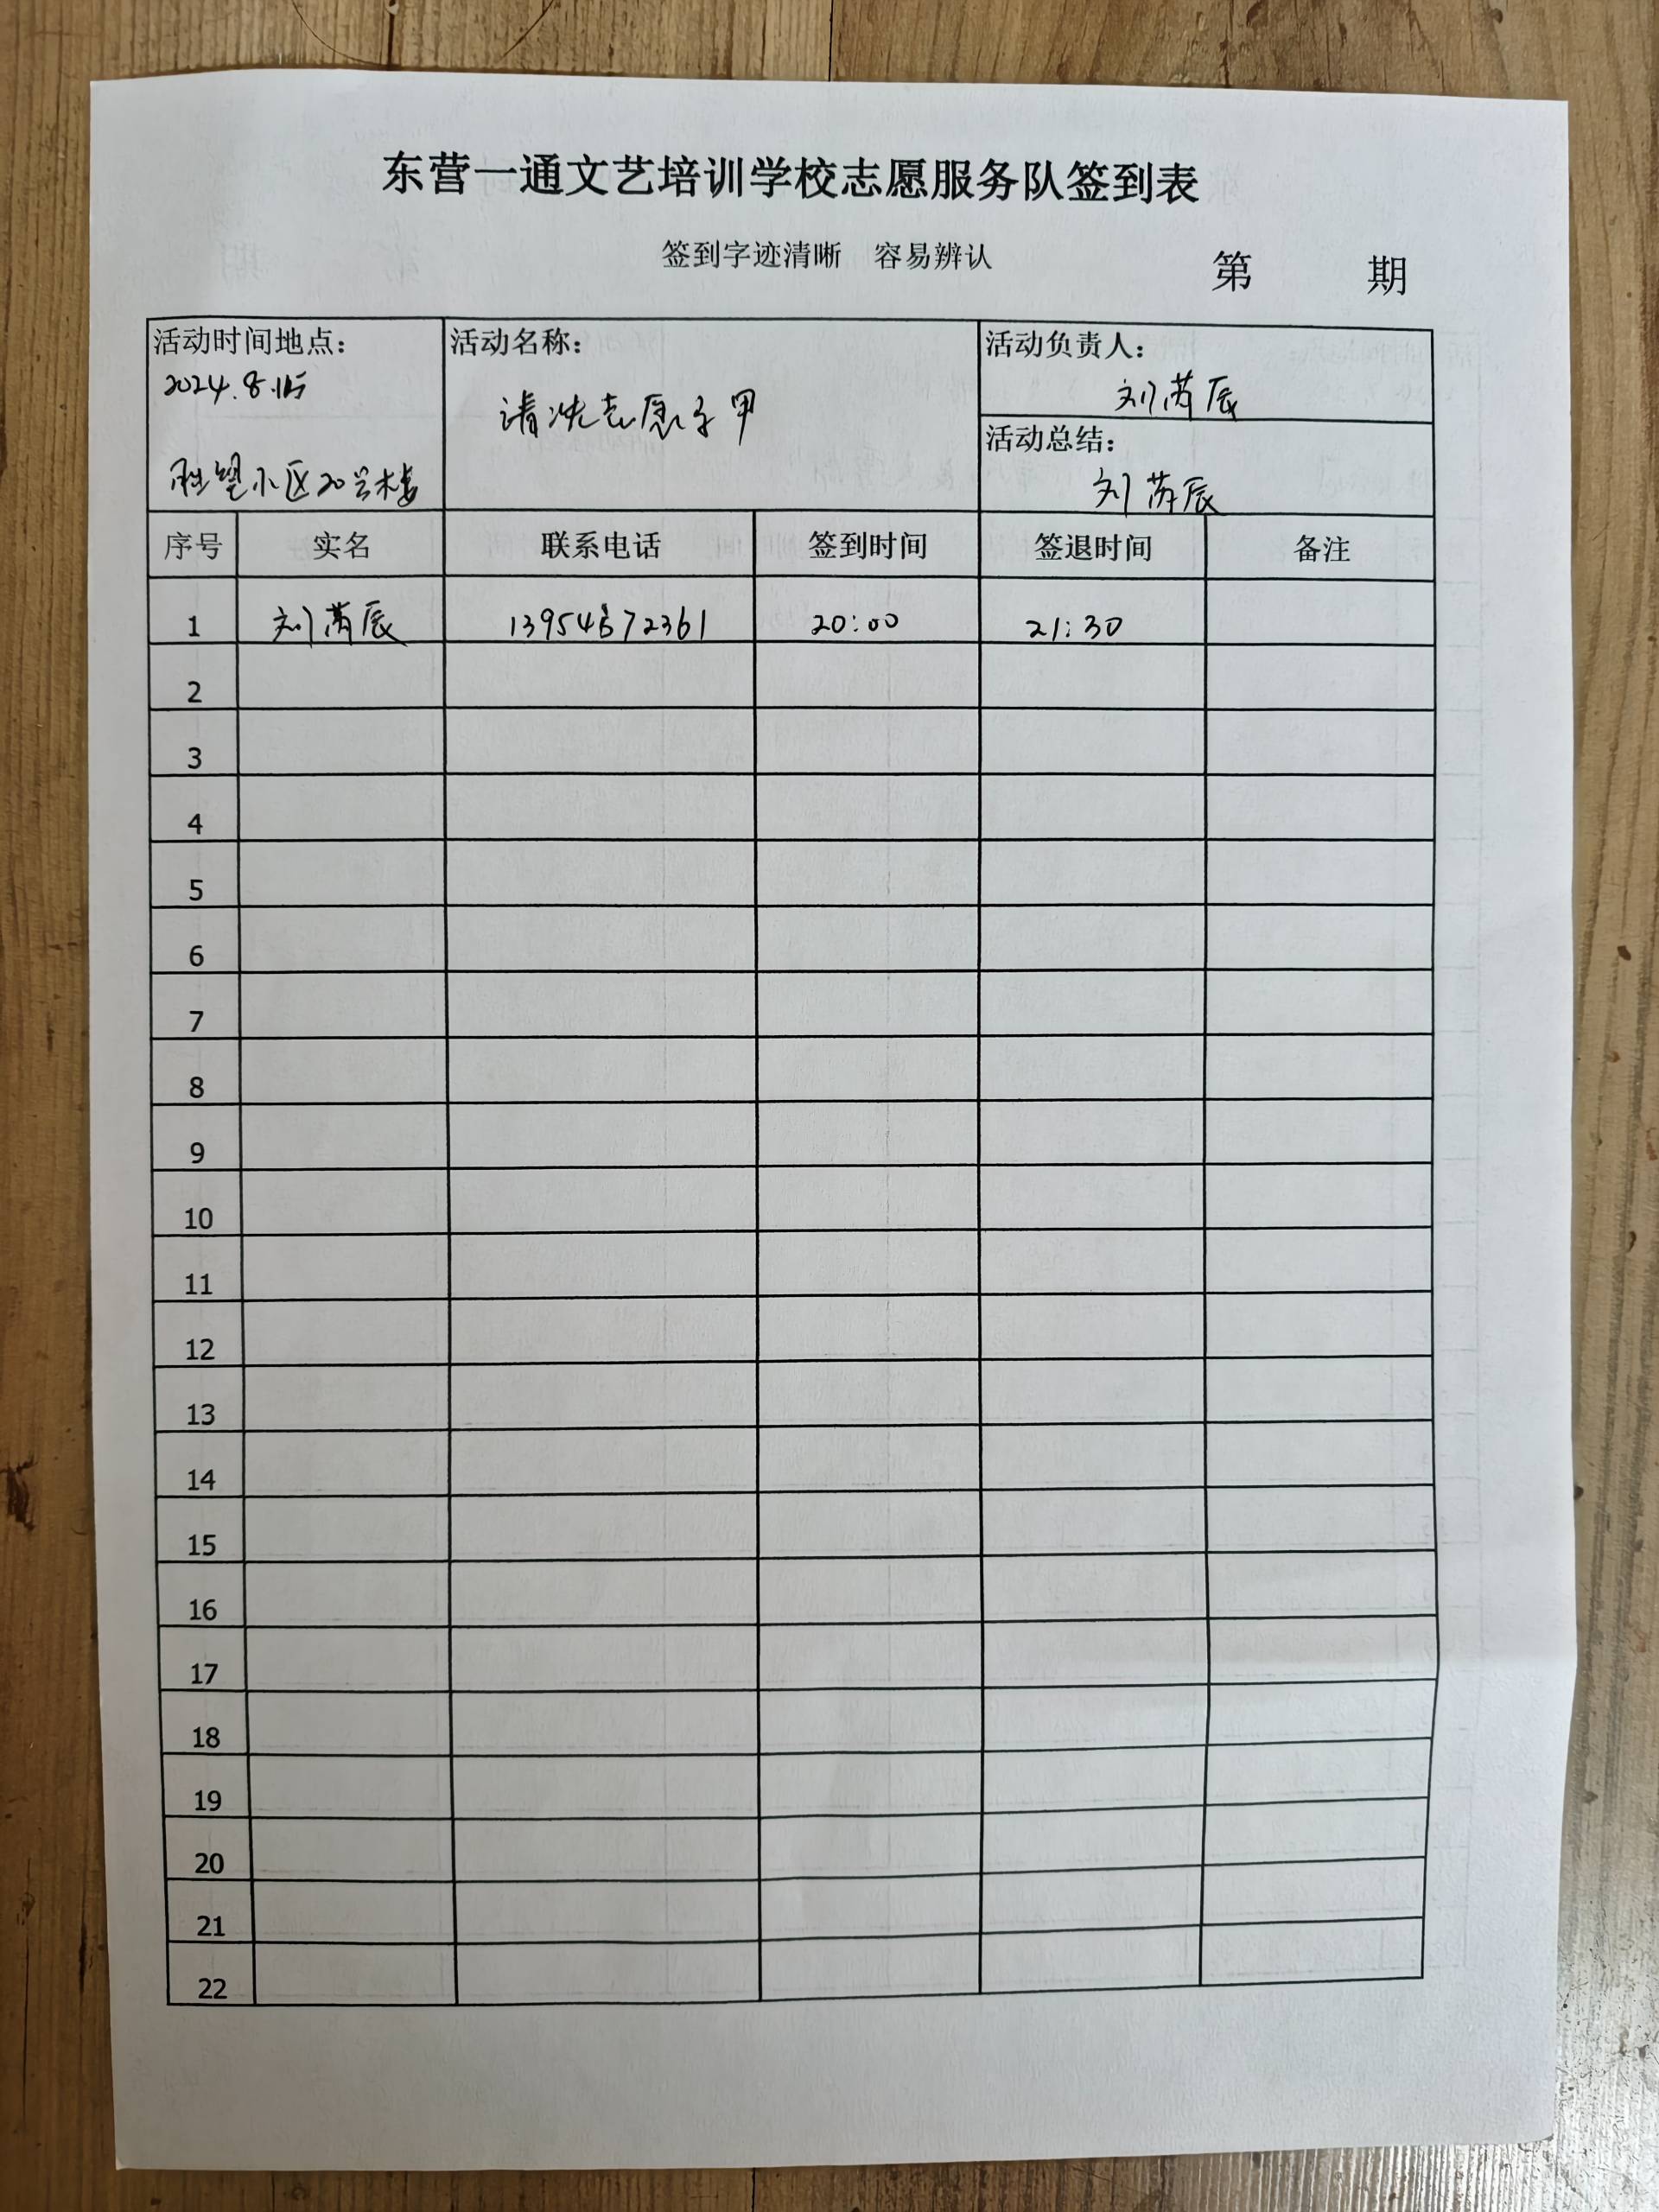 东营一通文艺培训学校志愿服务队签到表
签到字迹清晰 容易辨认
第 期
活动时间地点：
2024.8.
小区20号楼
活动名称：
清洗志愿马甲
活动负责人：
刘芮辰
活动总结：
刘芮辰
序号 实名 联系电话 签到时间 签退时间 备注
1 刘芮辰 13954672361 20:00 21:30
2
3
4
5
6
7
8
9
10
11
12
13
14
15
16
17
18
19
20
21
22